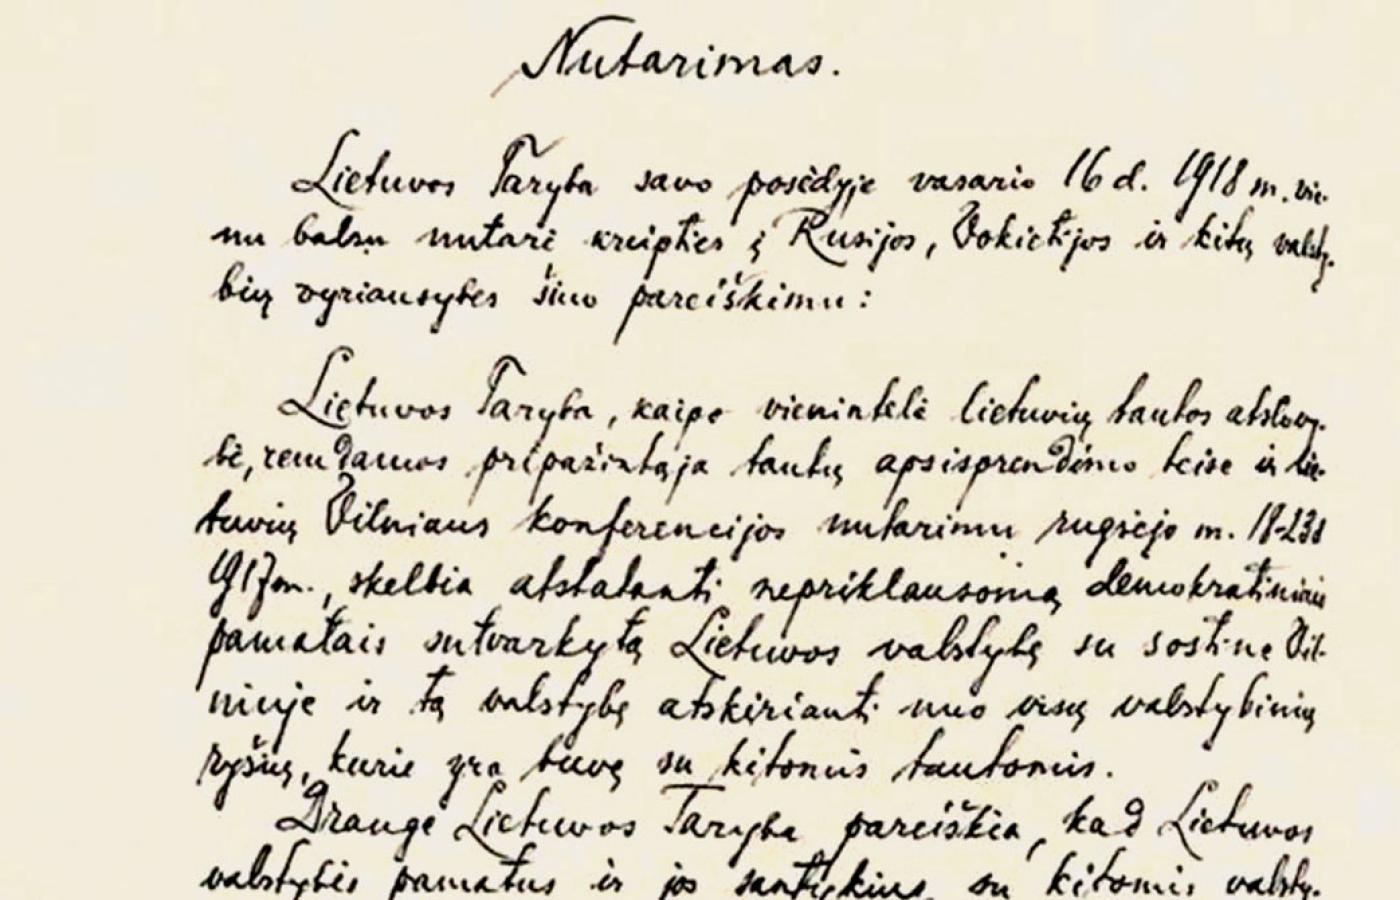 Nutarimas.
Lietuvos Taryba savo posėdyje vasario 16 d. 1918 m. vie-
nu balsu nutarė kreipties į Rusijos, Vokietijos ir kitų valsty-
bių vyriausybes šiuo pareiškimu:
Lietuvos Taryba, kaipo vienintelė lietuvių tautos atstovy-
bė, remdamos pripažintąja tautų apsisprendimo teise ir lie-
tuvių Vilniaus konferencijos nutarimu rugsėjo m. 18-23 d
1917 m., skelbia atstatanti nepriklausomą demokratiniais
pamatais sutvarkytą Lietuvos valstybę su sostine Vil-
niuje ir tą valstybę atskirianti nuo visų valstybinių
ryšių, kurie yra buvę su kitomis tautomis.
Drauge Lietuvos Taryba pareiškia, kad Lietuvos
valstybės pamatus ir jos santykius su kitomis valsty-